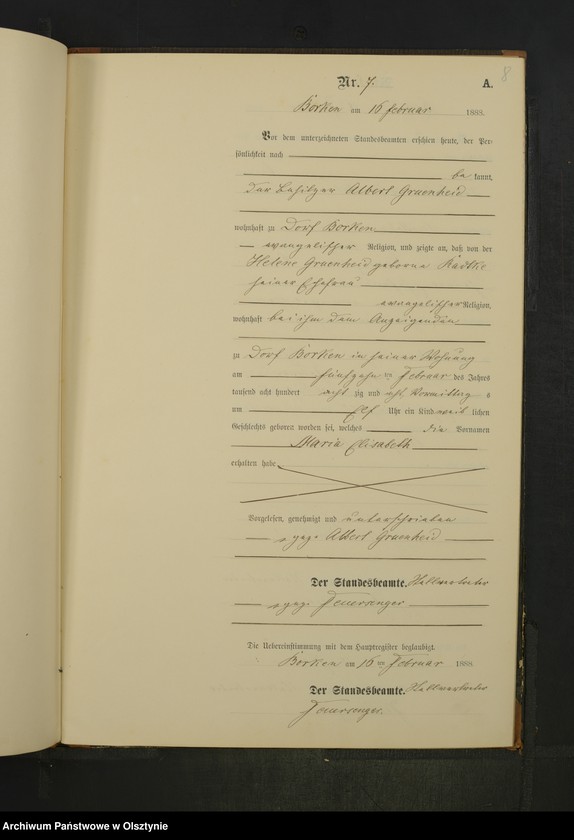 8
Nr. 7. A.
Borken am 16 Februar 1888.
Vor dem unterzeichneten Standesbeamten erschien heute, der Per-
sönlichkeit nach
be kannt,
der Besitzer Albert Gruenheid
wohnhaft zu Dorf Borken
evangelischer Religion, und zeigte an, daß von der
Helene Gruenheid geborne Radtke
seiner Ehefrau
evangelischer Religion,
wohnhaft bei ihm dem Anzeigenden
zu Dorf Borken in seiner Wohnung
am fünfzehn ten Februar des Jahres
tausend acht hundert acht zig und acht Vormittag s
um Elf Uhr ein Kind weib lichen
Geschlechts geboren worden sei, welches die Vornamen
Maria Elisabeth
erhalten habe
Vorgelesen, genehmigt und unterschrieben
gez. Albert Gruenheid
Der Standesbeamte. Stellvertreter
gez. Feuersenger
Die Uebereinstimmung mit dem Hauptregister beglaubigt.
Borken am 16 ten Februar 1888.
Der Standesbeamte. Stellvertreter
Feuersenger.
Archiwum Państwowe w Olsztynie